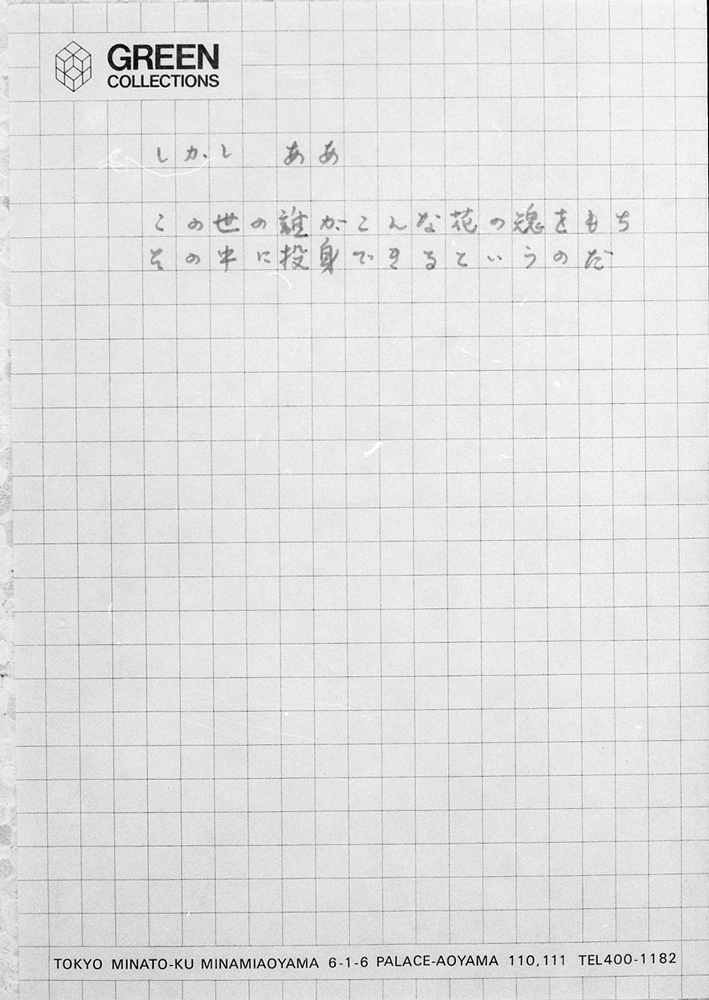 GREEN
COLLECTIONS
しかし ああ
この世の誰がこんな花の魂をもち
その中に投身できるというのだ
TOKYO MINATO-KU MINAMIAOYAMA 6-1-6 PALACE-AOYAMA 110,111 TEL400-1182